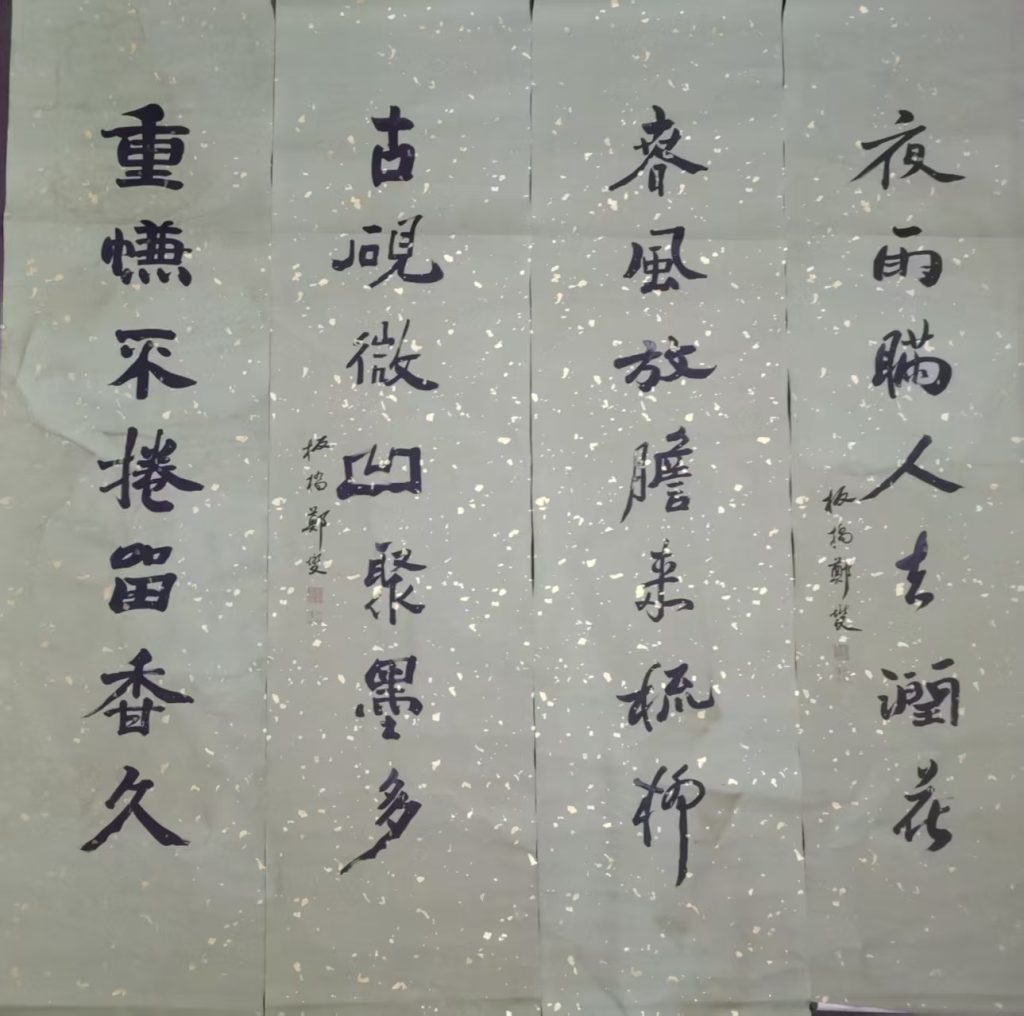 夜雨瞞人去潤花
板橋鄭燮
春風放膽來梳柳
古硯微凹聚墨多
板橋鄭燮
重㡘不捲留香久